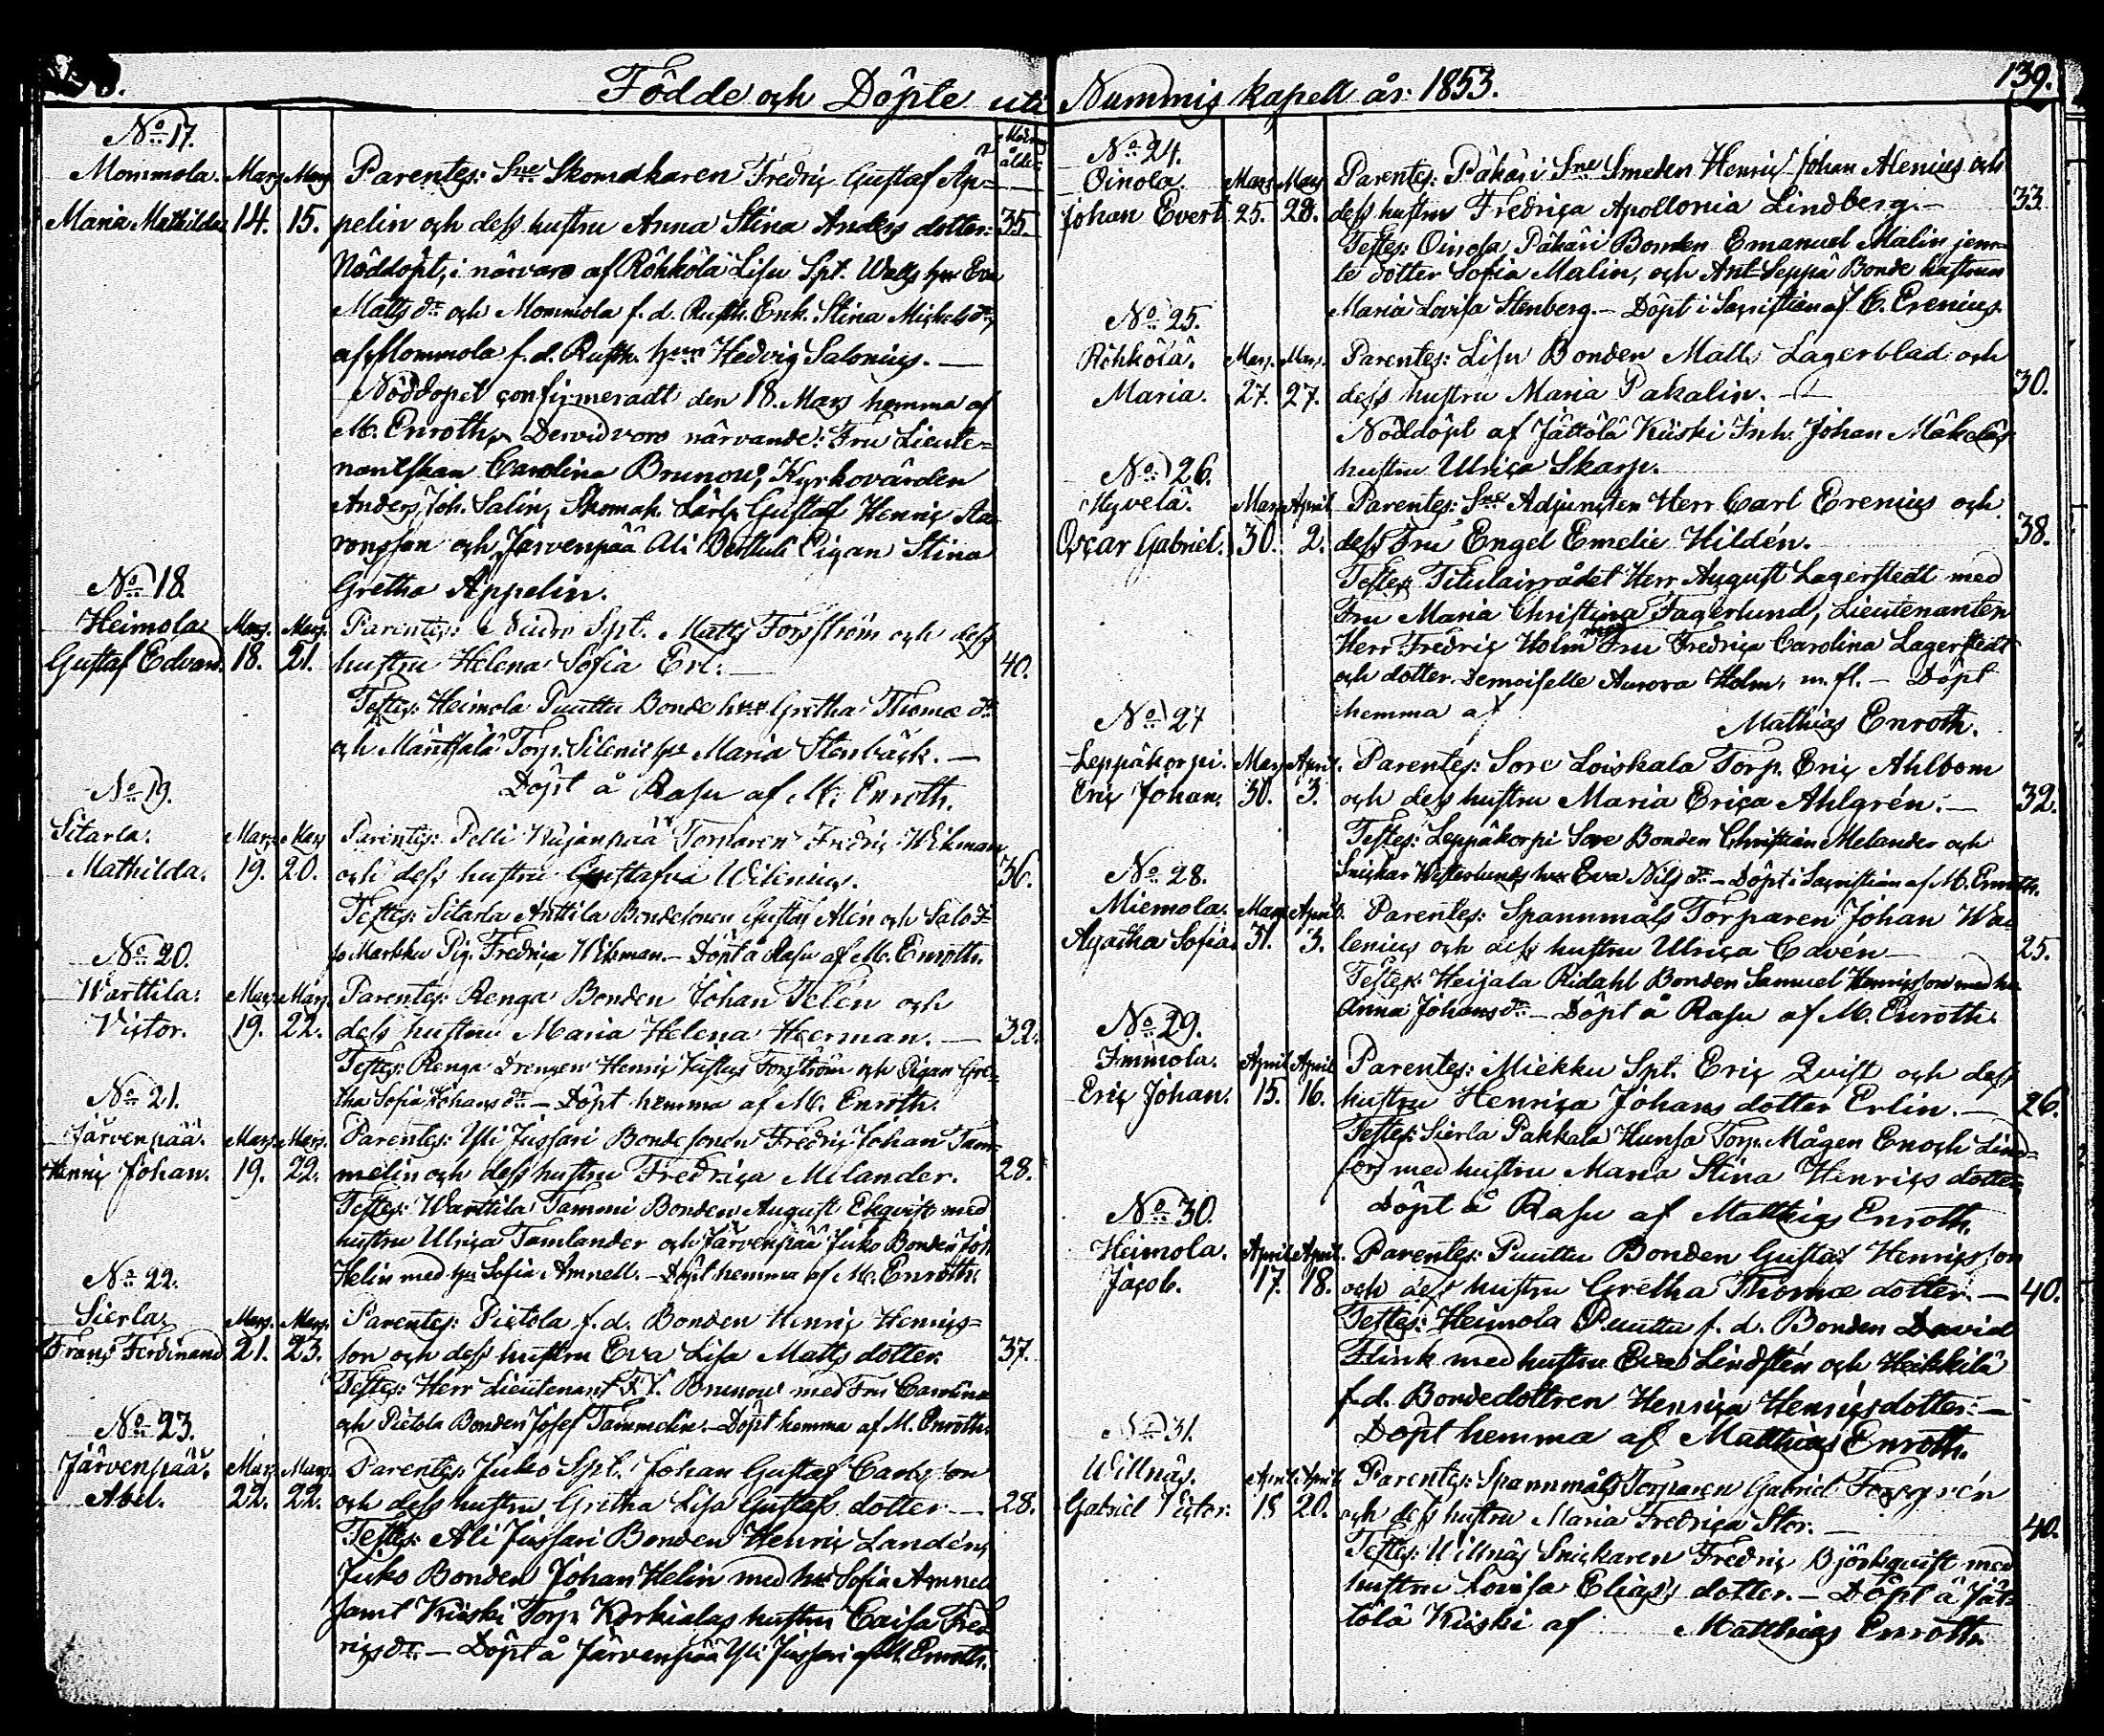 Födde och Döpte uti Nummis kapell år 1853.
139.
No 17.
Moderns ålder
Mommola. Mars Mars Parentes: Sne Skomakaren Fredric Gustaf Ap=
Maria Mathilda 14. 15. pelin och dess hustru Anna Stina Anders dotter. 35.
Nöddöpt, i närvaro af Röhkölä Lisu Spt. Walls hu Eva
Matts dr och Mommola f. d. Rusth. Enk. Stina Michels dr,
af Mommola f. d. Rusth. hu Hedvig Salonius.
Nöddopet confirmeradt den 18. Mars hemma af
M. Enroth, Dervid voro närvande: Fru Lieute=
nantskan Carolina Brunow, Kyrkovärden
Anders Joh. Salin, Skomak. Lärl. Gustaf Henric Aa=
ronsson och Järvenpää Ali Perttuli Pigan Stina
Gretha Appelin.
No 18.
Heimola Mars. Mars. Parentes: Spt. Matts Forsström och dess
Gustaf Edvard. 18. 21. hustru Helena Sofia Erl. 40.
Testes: Heimola Puuttu Bonde hu Gretha Thomæ dr
och Mäntsälä Torp. Silenii hu Maria Stenbäck.
Döpt å Rasu af M. Enroth.
No 19.
Sitarla. Mars Mars Parentes: Pelli Kujanpää Torparen Fredric Wikman
Mathilda. 19. 20. och dess hustru Gustafva Wilenius. 36.
Testes: Sitarla Anttila Bondesonen Gustaf Alén och Salo
Markku Pig. Fredrica Wikman. Döpt å Rasu af M. Enroth.
No 20.
Warttila. Mars Mars. Parentes: Renga Bonden Johan Telén och
Victor. 19. 22. dess hustru Maria Helena Heerman. 32.
Testes: Renga Drengen Henric Justus Forsström och Pigan Gre=
tha Sofia Johans dr. Döpt hemma af M. Enroth.
No 21.
Järvenpää. Mars. Mars. Parentes: Yli Jussari Bondesonen Fredric Johan Tam=
Henric Johan. 19. 22. melin och dess hustru Fredrica Melander. 28.
Testes: Warttila Tammi Bonden August Ekqvist med
hustru Ulrica Tamlander och Järvenpää Juko Bonden Joh
Helin med hu Sofia Amnell. Döpt hemma af M. Enroth.
No 22.
Sierla. Mars. Mars. Parentes: Pietola f. d. Bonden Henric Henrics=
Frans Ferdinand 21. 23. son och dess hustru Eva Lisa Matts dotter. 37.
Testes: Herr Lieutenant Brunow med Fru Carolina
och Pietola Bonden Josef Tammelin. Döpt hemma af M. Enroth.
No 23.
Järvenpää. Mars Mars. Parentes: Juko Spt. Johan Gustaf Carlsson
Abel. 22. 22. och dess hustru Gretha Lisa Gustafs dotter 28.
Testes: Ali Jussari Bonden Henric Landén,
Juko Bonden Johan Helin med hu Sofia Amnell
samt Kiiski Torp. Korkialas hustru Caisa Fred
rics dr. Döpt å Järvenpää Yli Jussari af M. Enroth.
No 24.
Oinola. Mars Mars Parentes: Päkäri Sne Smeden Henric Johan Alenius och
Johan Evert 25. 28. dess hustru Fredrica Apollonia Lindberg. 33
Testes: Oinola Päkäri Bonden Emanuel Malin jem=
te dotter Sofia Malin, och Ant Seppä Bonde hustrun
Maria Lovisa Stenberg. Döpt i Sacristian af C. Erenius.
No 25.
Röhkölä. Mars. Mars. Parentes: Lisu Bonden Matts Lagerblad och
Maria. 27. 27. dess hustru Maria Pakalin. 30.
Nöddöpt af Jättölä Kiiski Inh. Johan Mäkeläs
hustru Ulrica Skarp.
No 26.
Hyvelä. Mars April Parentes: Sne Adjuncten Herr Carl Erenius och
Oscar Gabriel. 30. 2. dess Fru Engel Emelie Hildén. 38.
Testes: Titulairrådet Herr August Lagerstedt med
Fru Maria Christina Fagerlund, Lieutenanten
Herr Fredric Holm med Fru Fredrica Carolina Lagerstedt
och dotter Demoiselle Aurora Holm, m. fl. Döpt
hemma af Mathias Enroth.
No 27
Leppäkorpi. Mars April. Parentes: Sore Loiskala Torp. Eric Ahlbom
Eric Johan. 30. 3. och dess hustru Maria Erica Ahlgrén. 32.
Testes: Leppäkorpi Sore Bonden Christian Melander och
Snickar Westerlunds hu Eva Nils dr. Döpt i Sacristian af M. Enroth.
No 28.
Miemola. Mars April. Parentes: Spannmåls Torparen Johan Wa=
Agatha Sofia. 31. 3. lenius och dess hustru Ulrica Edven 25.
Testes: Heijala Ridahl Bonden Samuel Henricsson med hu
Anna Johans dr. Döpt å Rasu af M. Enroth.
No 29.
Immola. April April Parentes: Miekku Spt. Eric Qvist och dess
Eric Johan. 15. 16. hustru Henrica Johans dotter Erlin. 26.
Testes: Sierla Pakkala Hunsa Torp. Mågen Enoch Lind=
fors med hustru Maria Stina Henrics dotter
Döpt å Rasu af Matthias Enroth.
No 30.
Heimola. April April. Parentes: Puuttu Bonden Gustaf Henricsson
Jacob. 17. 18. och dess hustru Gretha Thomæ dotter. 40.
Testes: Heimola Puuttu f. d. Bonden David
Flink med hustru Eva Lindstén och Heikkilä
f. d. Bondedottren Henrica Henricsdotter.
Döpt hemma af Matthias Enroth.
No 31.
Willnäs. April April Parentes: Spannmåls Torparen Gabriel Forsgrén
Gabriel Victor. 18 20. och dess hustru Maria Fredrica Stor. 40.
Testes: Willnäs Snickaren Fredric Björkqvist med
hustru Lovisa Elias dotter. Döpt å Jät=
tölä Kiiski af Matthias Enroth.